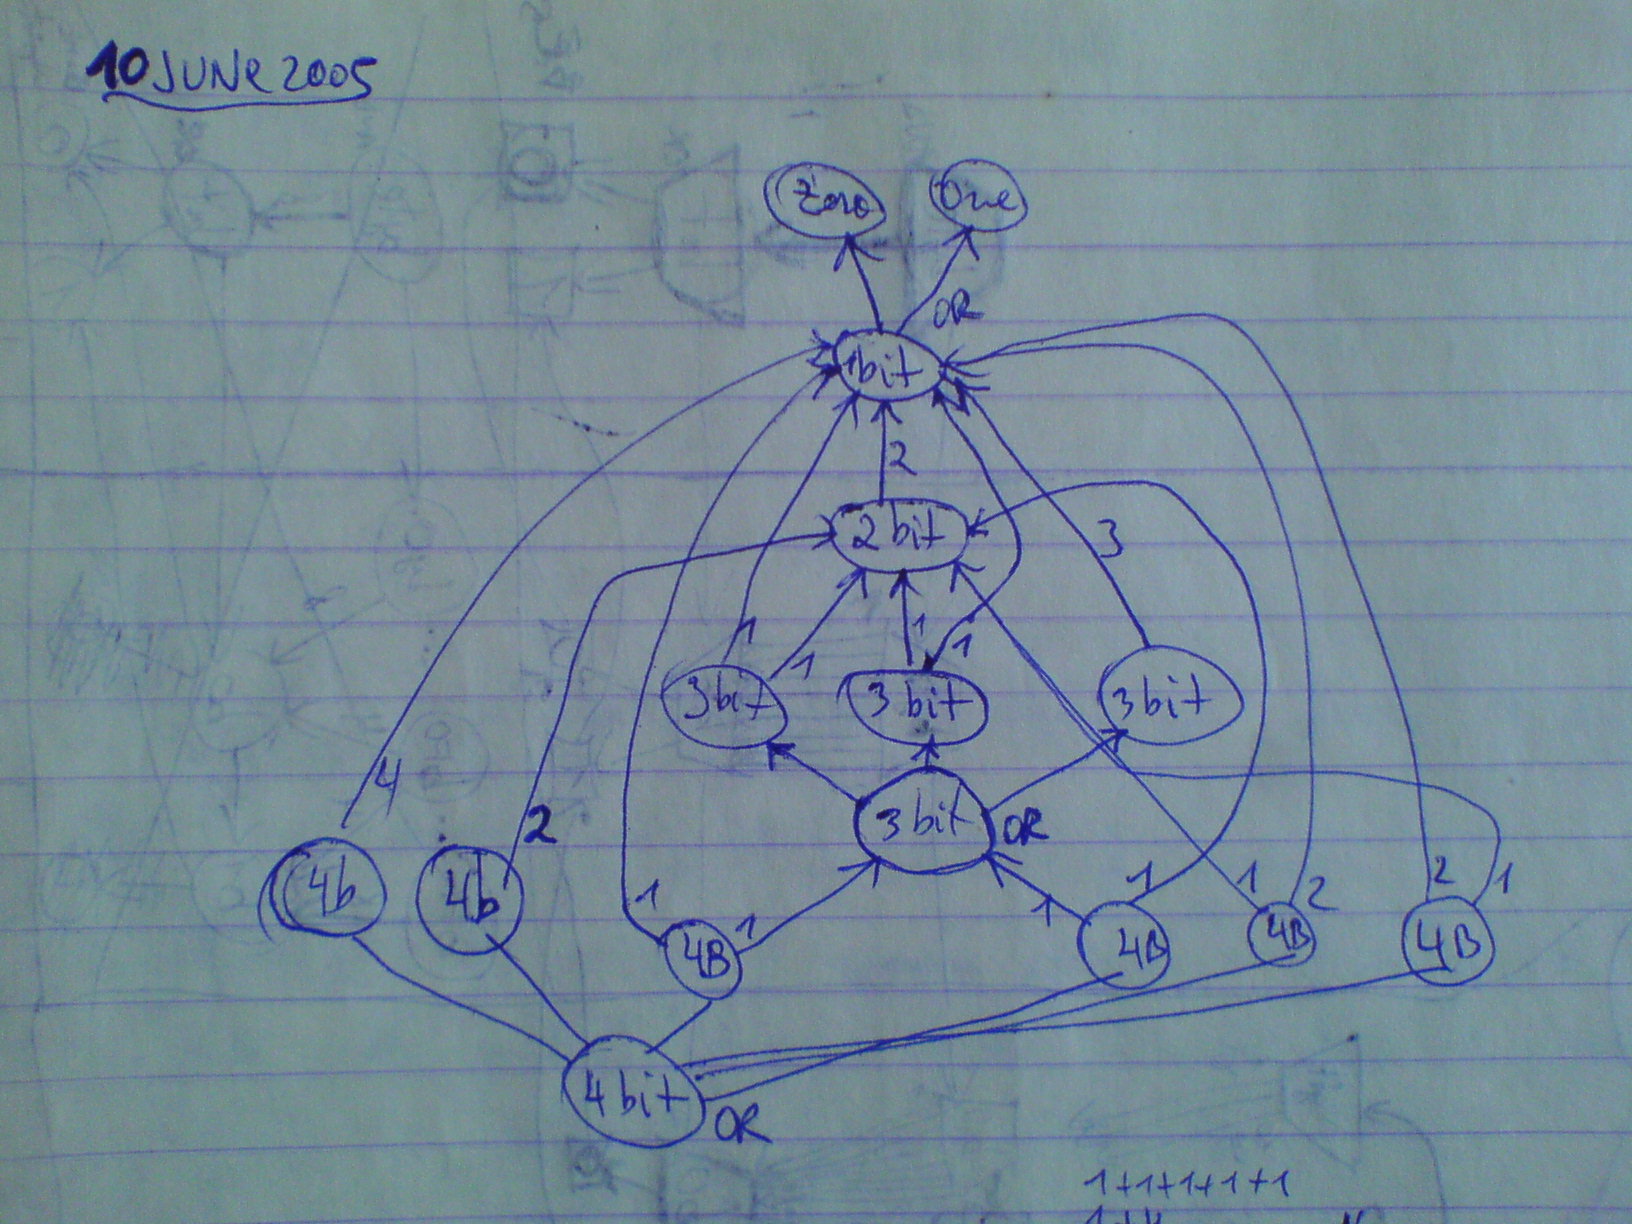 10 JUNE 2005
Zero One
OR
1bit
2
2 bit
3
1 1 1 1
3bit 3 bit 3bit
4
2
3 bit OR
4b 4b
1 1 1 1 1 2 2 1
4B 4B 4B 4B
4 bit OR
1+1+1+1+1